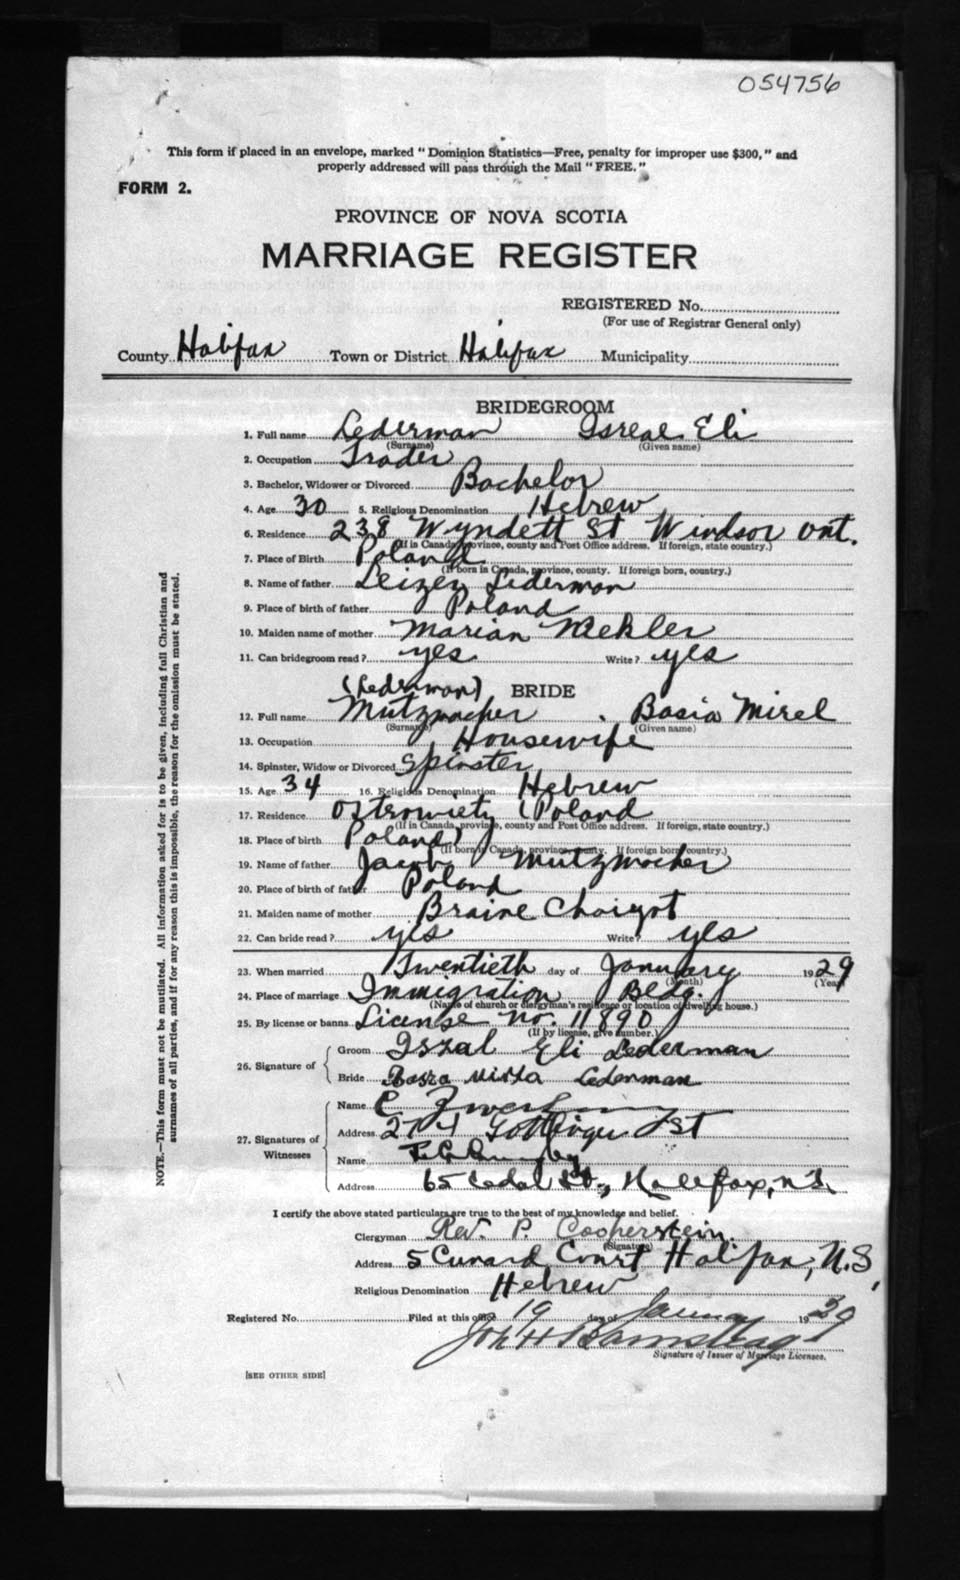 054756
This form if placed in an envelope, marked " Dominion Statistics—Free, penalty for improper use $300," and
properly addressed will pass through the Mail "FREE."
FORM 2.
PROVINCE OF NOVA SCOTIA
MARRIAGE REGISTER
REGISTERED No.
(For use of Registrar General only)
County Halifax Town or District Halifax Municipality
BRIDEGROOM
1. Full name Lederman Isreal Eli
(Surname) (Given name)
2. Occupation Trader
3. Bachelor, Widower or Divorced Bachelor
4. Age 30 5. Religious Denomination Hebrew
6. Residence 238 Wyndett St Windsor Ont.
(If in Canada, province, county and Post Office address. If foreign, state country.)
7. Place of Birth Poland
(If born in Canada, province, county. If foreign born, country.)
8. Name of father Leizer Lederman
9. Place of birth of father Poland
10. Maiden name of mother Marian Mekler
11. Can bridegroom read? yes Write? yes
(Lederman) BRIDE
12. Full name Mutzmacher Basia Mirel
(Surname) (Given name)
13. Occupation Housewife
14. Spinster, Widow or Divorced Spinster
15. Age 34 16. Religious Denomination Hebrew
17. Residence Ostrowiety (Poland
(If in Canada, province, county and Post Office address. If foreign, state country.)
18. Place of birth Poland)
(If born in Canada, province, county. If foreign born, country.)
19. Name of father Jacob Mutzmacher
20. Place of birth of father Poland
21. Maiden name of mother Braine Choigot
22. Can bride read? yes Write? yes
23. When married Twentieth day of January 1929
(Month) (Year)
24. Place of marriage Immigration Bldg.
(Name of church or clergyman's residence or location of dwelling house.)
25. By license or banns License No. 11890
(If by license, give number.)
26. Signature of
Groom Iszal Eli Lederman
Bride Basza Mirla Lederman
27. Signatures of Witnesses
Name C
Address 274 Gottingen St
Name
Address 65 St., Halifax, N.S.
I certify the above stated particulars are true to the best of my knowledge and belief.
Clergyman Rev. P. Cooperstein.
(Signature)
Address 5 Cunard Court Halifax, N.S,
Religious Denomination Hebrew
Registered No. Filed at this office 19 day of January 1930
Signature of Issuer of Marriage Licenses.
[SEE OTHER SIDE]
NOTE.—This form must not be mutilated. All information asked for is to be given, including full Christian and
surnames of all parties, and if for any reason this is impossible, the reason for the omission must be stated.